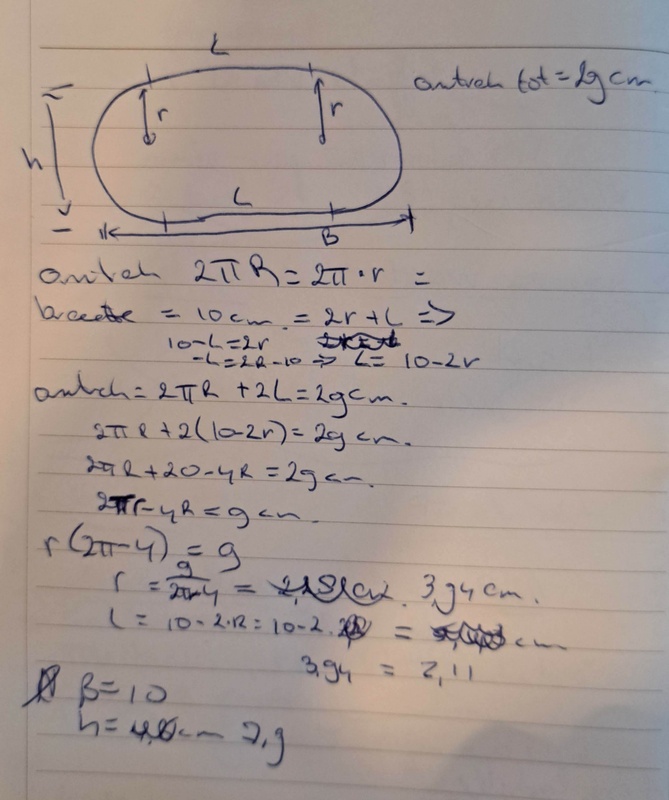 L
omtrek tot = 29 cm
r r
h
L
B
omtrek 2πR = 2π·r =
breedte = 10 cm = 2r + L =>
10-L=2r
-L=2R-10 => L= 10-2r
omtrek = 2πR + 2L = 29 cm.
2πR + 2(10-2r) = 29 cm.
2πR + 20 - 4R = 29 cm.
2πr - 4R = 9 cm.
r(2π-4) = 9
r = 9/2π-4 = 3,94 cm.
L = 10-2·R = 10-2. = cm
3,94 = 2,11
B=10
h= cm 7,9